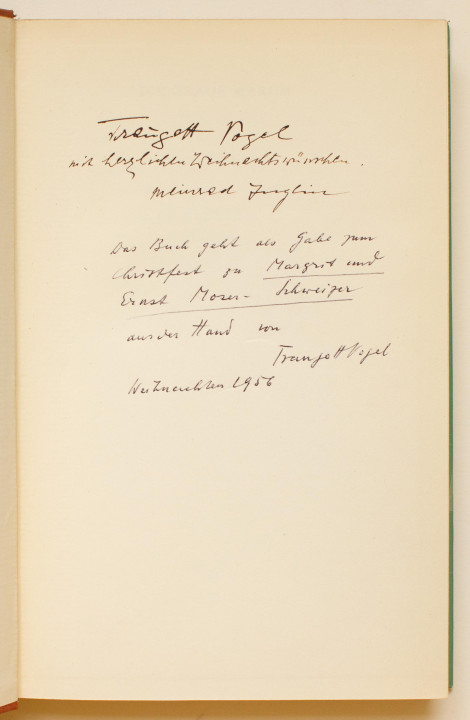 Traugott Vogel
mit herzlichen Weihnachtswünschen.
Meinrad Inglin
Das Buch geht als Gabe zum
Christfest zu Margrit und
Ernst Moser-Schweizer
aus der Hand von
Traugott Vogel
Weihnachten 1956